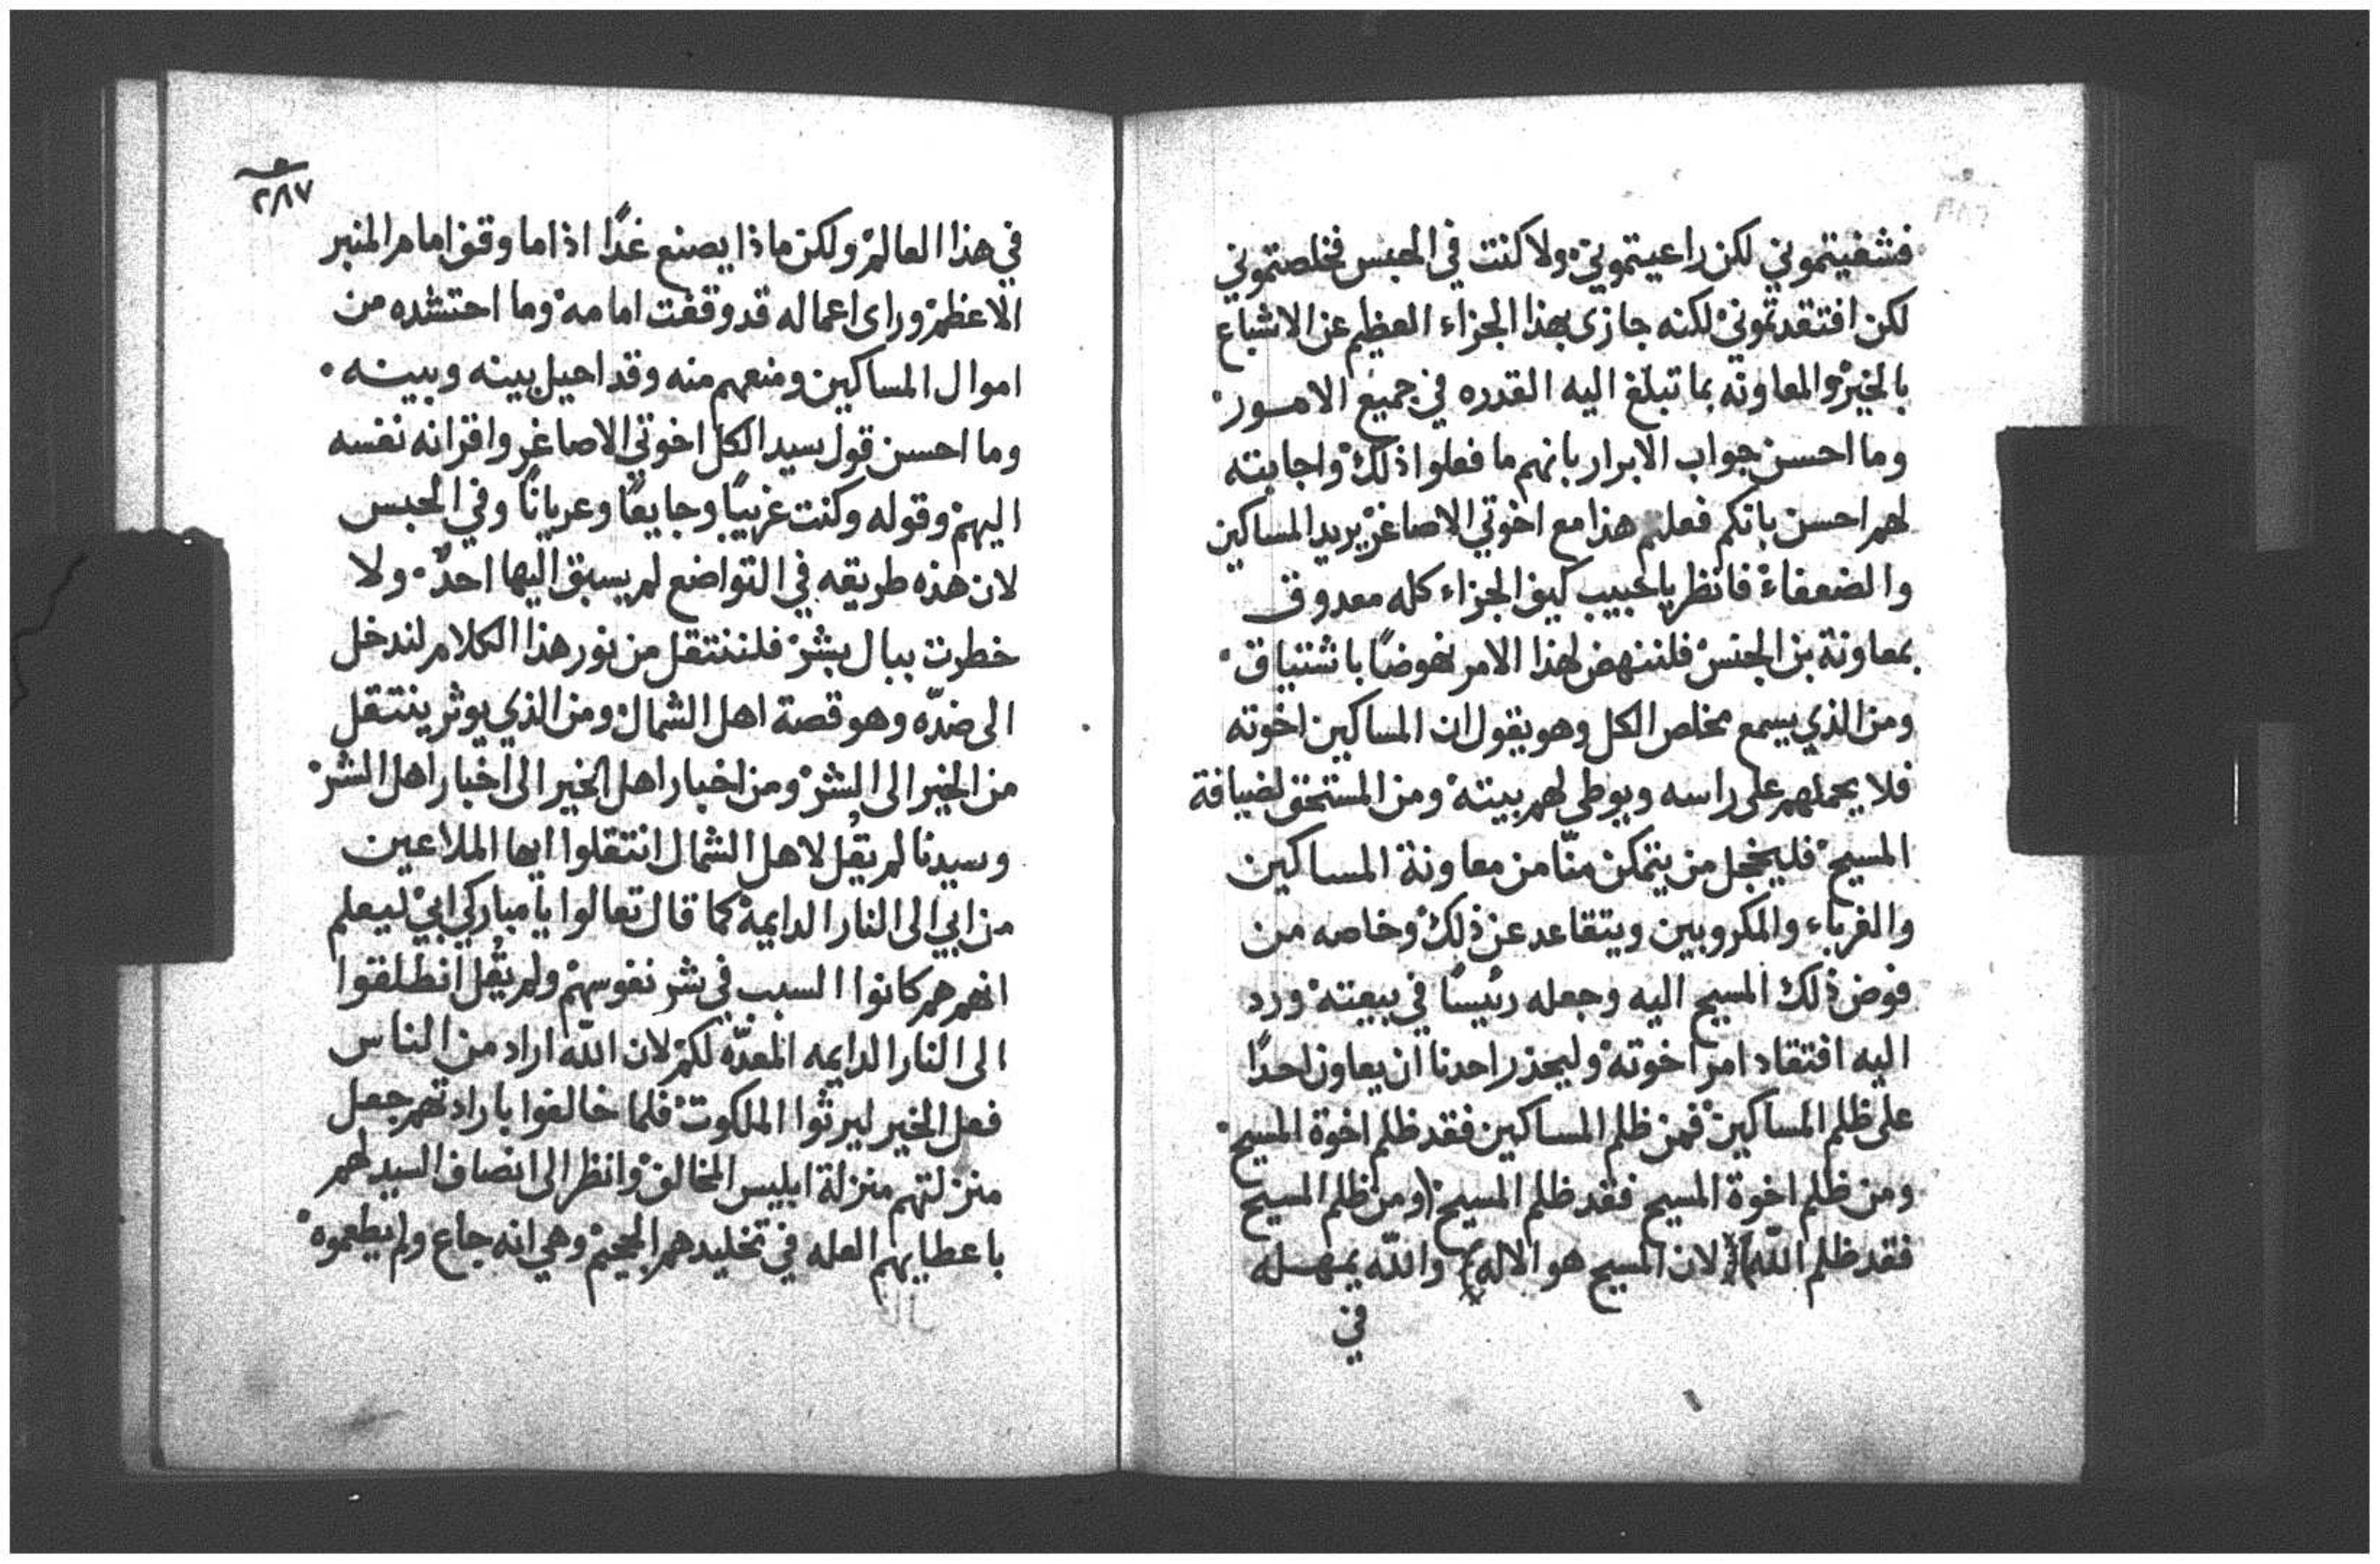 فشفيتموني لكن راعيتموني ولا كنت في الحبس فخلصتموني
لكن افتقدتموني لكنه جازى بهذا الجزاء العظيم عن الاشباع
بالخير والمعاونه بما تبلغ اليه القدره في جميع الامور
وما احسن جواب الابرار بانهم ما فعلوا ذلك واجابته
لهم احسن بانكم فعلتم هذا مع اخوتي الاصاغر يريد المساكين
والضعفاء فانظر يا حبيب كيف الجزاء كله معدوق
بمعاونة بن الجنس فلننهض لهذا الامر نهوضًا باشتياق
ومن الذي يسمع مخلص الكل وهو يقول ان المساكين اخوته
فلا يحملهم على راسه ويوطي لهم بيته ومن المستحق لضيافة
المسيح فليخجل من يتمكن منّا من معاونة المساكين
والغرباء والمكروبين ويتقاعد عن ذلك وخاصه من
فوض ذلك المسيح اليه وجعله رئيسًا في بيعته ورد
اليه افتقاد امر اخوته وليحذر احدنا ان يعاون احدًا
على ظلم المساكين فمن ظلم المساكين فقد ظلم اخوة المسيح
ومن ظلم اخوة المسيح فقد ظلم المسيح (ومن ظلم المسيح
فقد ظلم الله) (لان المسيح هو الاله) والله يمهله
في
٢٨٧
في هذا العالم ولكن ماذا يصنع غدًا اذا ما وقف امام المنبر
الاعظم وراى اعماله قد وقفت امامه وما احتشده من
اموال المساكين ومنعهم منه وقد احيل بينه وبينه
وما احسن قول سيد الكل اخوتي الاصاغر واقرانه نفسه
اليهم وقوله وكنت غريبًا وجايعًا وعريانًا وفي الحبس
لان هذه طريقه في التواضع لم يسبق اليها احدٌ ولا
خطرت ببال بشر فلننتقل من نور هذا الكلام لندخل
الى ضدّه وهو قصة اهل الشمال ومن الذي يوثر ينتقل
من الخير الى الشر ومن اخبار اهل الخير الى اخبار اهل الشر
وسيدنا لم يقُل لاهل الشمال انتقلوا ايها الملاعين
من ابي الى النار الدايمة كما قال تعالوا يا مباركي ابي ليعلم
انهم هم كانوا السبب في شر نفوسهم ولم يقُل انطلقوا
الى النار الدايمه المعدّه لكم لان الله اراد من الناس
فعل الخير ليرثوا الملكوت فلما خالفوا بارادتهم جعل
منزلتهم منزلة ابليس المخالف وانظر الى انصاف السيد لهم
باعطايهم العله في تخليدهم الجحيم وهي انه جاع ولم يطعموه